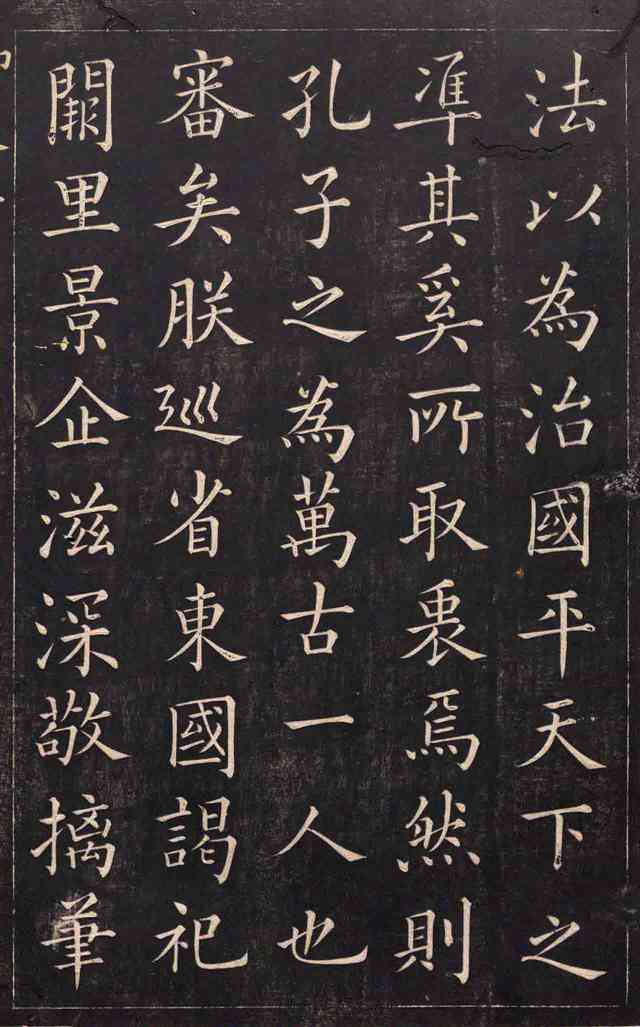 法以為治國平天下之
準其奚所取衷焉然則
孔子之為萬古一人也
審矣朕巡省東國謁祀
闕里景企滋深敬摛筆